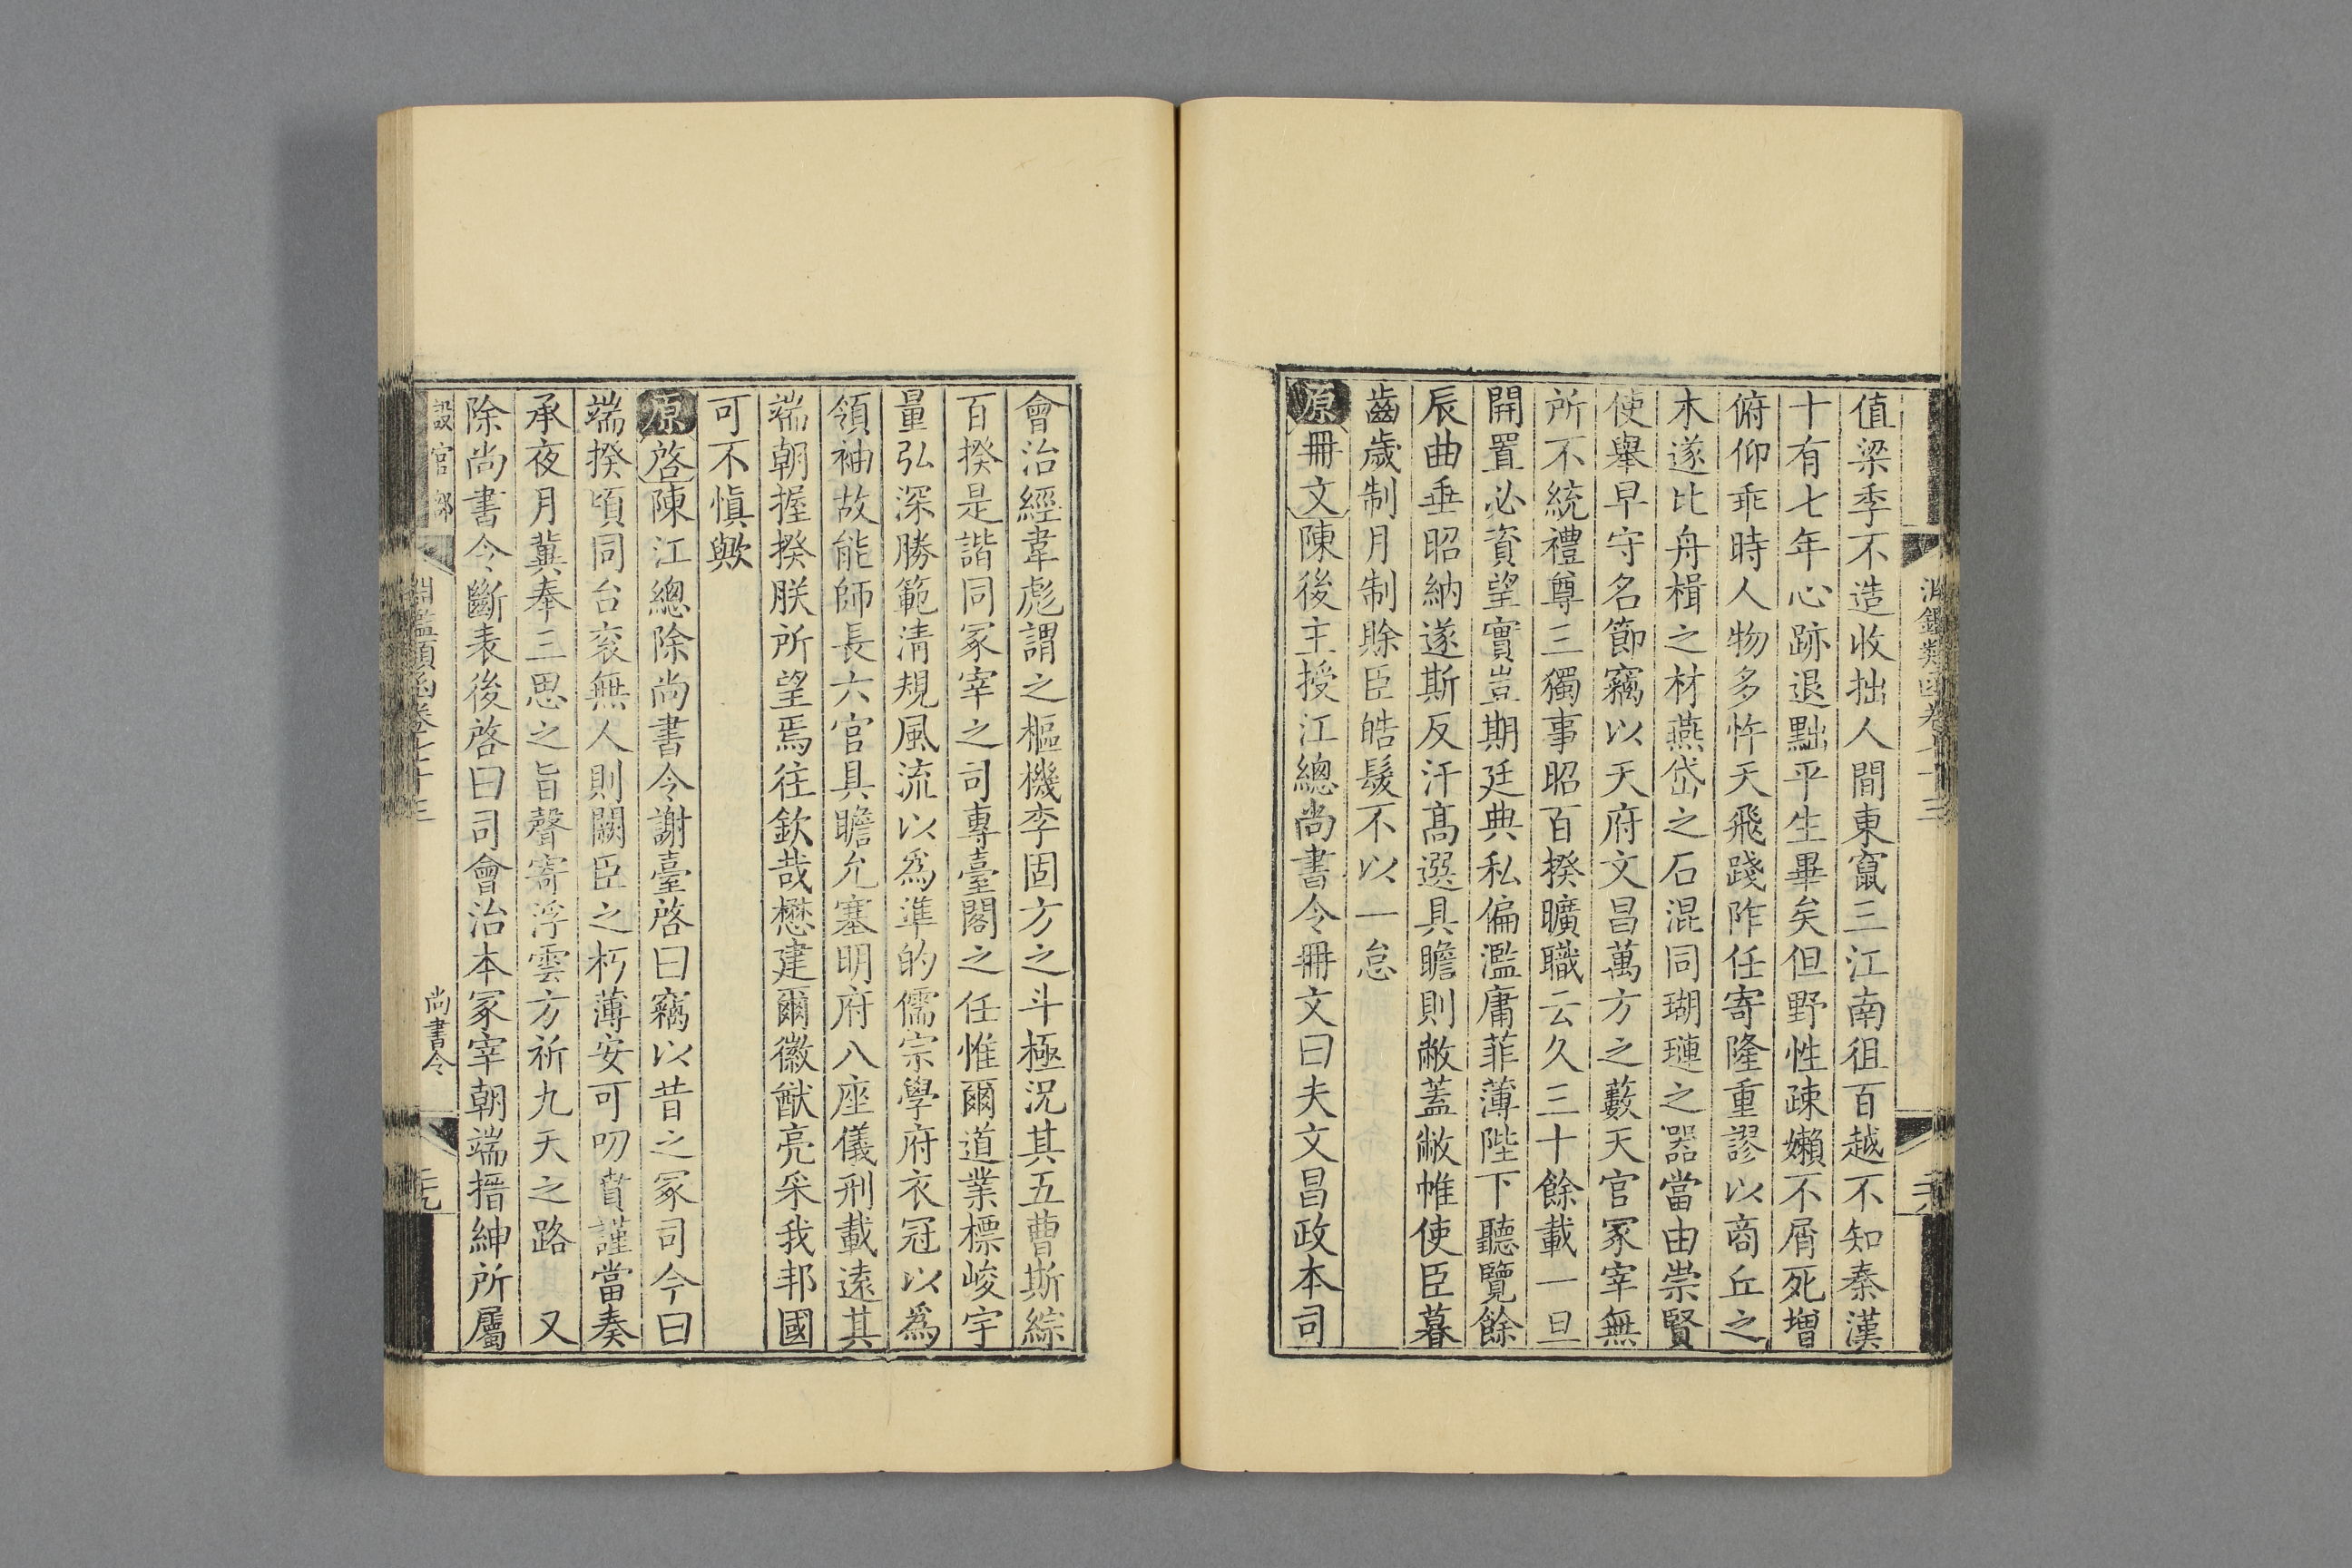 值梁季不造收拙人間東竄三江南徂百越不知秦漢
十有七年心跡退黜平生畢矣但野性疎嬾不屑死增
俯仰乖時人物多忤天飛踐阼任寄隆重謬以商丘之
木遂比舟楫之材燕岱之石混同瑚璉之器當由崇賢
使舉早守名節竊以天府文昌萬方之藪天官冢宰無
所不統禮尊三獨事昭百揆曠職云久三十餘載一旦
開置必資望實豈期廷典私偏濫庸菲薄陛下聽覽餘
辰曲垂昭納遂斯反汗髙選具瞻則敝蓋敝帷使臣暮
齒歲制月制賖臣皓髮不以一怠
原冊文陳後主授江總尚書令冊文曰夫文昌政本司
會治經韋彪謂之樞機李固方之斗極況其五曹斯綜
百揆是諧同冢宰之司專臺閣之任惟爾道業標峻宇
量弘深勝範清規風流以爲準的儒宗學府衣冠以爲
領袖故能師長六官具瞻允塞明府八座儀刑載遠其
端朝握揆朕所望焉往欽哉懋建爾徽猷亮采我邦國
可不慎歟
原啓陳江總除尚書令謝臺啓曰竊以昔之冢司今曰
端揆頃同台衮無人則闕臣之朽薄安可叨賁謹當奏
承夜月蓂奉三思之旨聲寄浮雲方祈九天之路 又
除尚書令斷表後啓曰司會治本冢宰朝端搢紳所屬
設官部 淵鑑類函卷七十三 尚書令